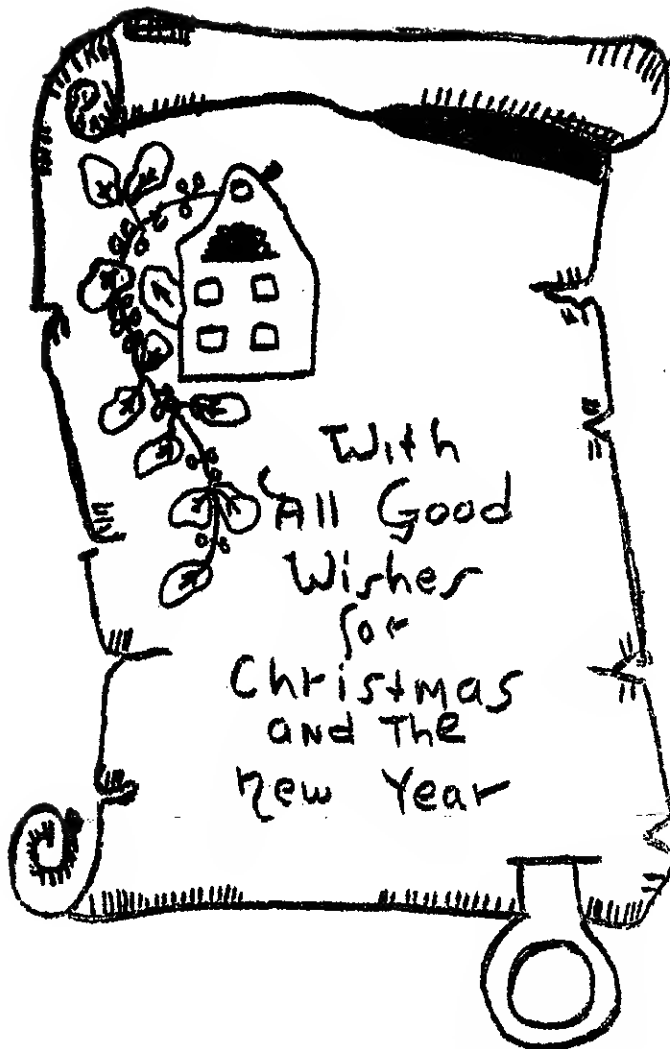 With
All Good
Wishes
for
Christmas
and The
New Year